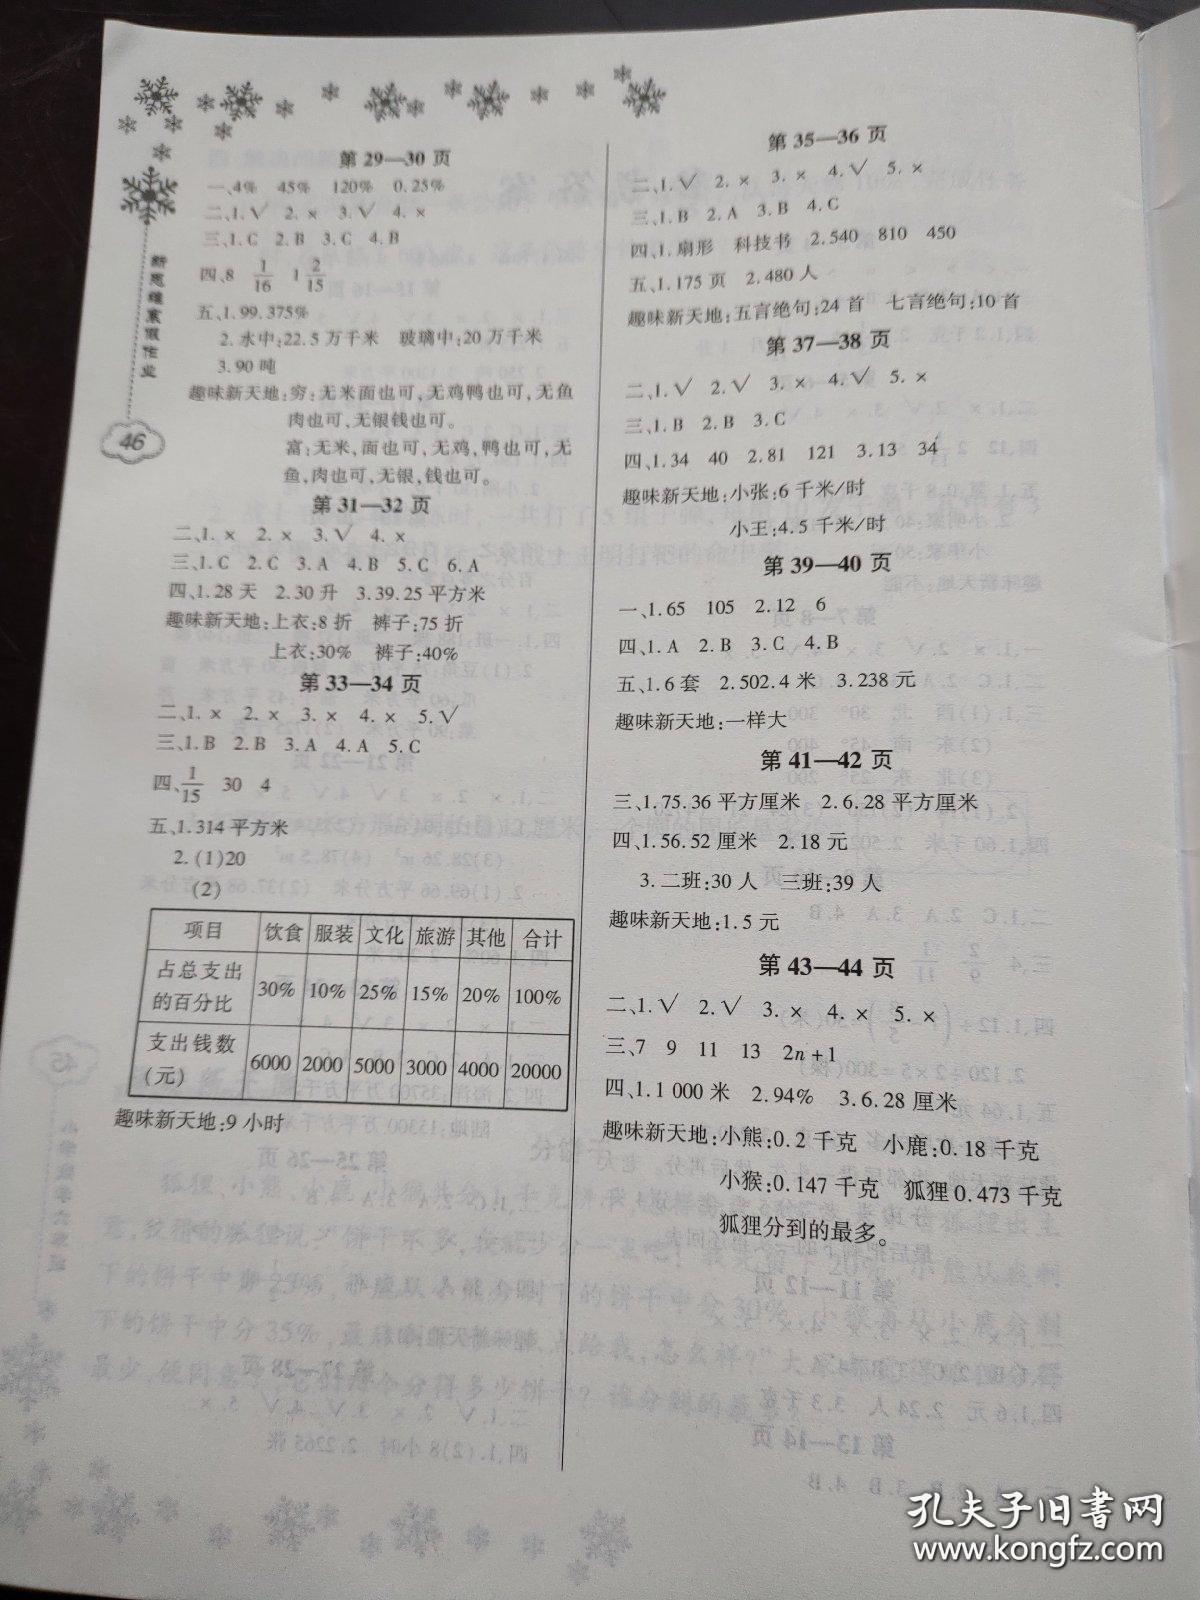 新思维寒假作业
46
第29—30页
一、4% 45% 120% 0.25%
二、1.√ 2.× 3.√ 4.×
三、1.C 2.B 3.C 4.B
四、8 1/16 1 2/15
五、1.99.375%
2.水中:22.5万千米 玻璃中:20万千米
3.90吨
趣味新天地:穷:无米面也可,无鸡鸭也可,无鱼
肉也可,无银钱也可。
富:无米,面也可,无鸡,鸭也可,无
鱼,肉也可,无银,钱也可。
第31—32页
二、1.× 2.× 3.√ 4.×
三、1.C 2.C 3.A 4.B 5.C 6.A
四、1.28天 2.30升 3.39.25平方米
趣味新天地:上衣:8折 裤子:75折
上衣:30% 裤子:40%
第33—34页
二、1.× 2.× 3.× 4.× 5.√
三、1.B 2.B 3.A 4.A 5.C
四、1/15 30 4
五、1.314平方米
2.(1)20
(2)
项目 饮食 服装 文化 旅游 其他 合计
占总支出
的百分比 30% 10% 25% 15% 20% 100%
支出钱数
(元) 6000 2000 5000 3000 4000 20000
趣味新天地:9小时
第35—36页
二、1.√ 2.× 3.× 4.√ 5.×
三、1.B 2.A 3.B 4.C
四、1.扇形 科技书 2.540 810 450
五、1.175页 2.480人
趣味新天地:五言绝句:24首 七言绝句:10首
第37—38页
二、1.√ 2.√ 3.× 4.√ 5.×
三、1.B 2.B 3.C
四、1.34 40 2.81 121 3.13 34
趣味新天地:小张:6千米/时
小王:4.5千米/时
第39—40页
一、1.65 105 2.12 6
四、1.A 2.B 3.C 4.B
五、1.6套 2.502.4米 3.238元
趣味新天地:一样大
第41—42页
三、1.75.36平方厘米 2.6.28平方厘米
四、1.56.52厘米 2.18元
3.二班:30人 三班:39人
趣味新天地:1.5元
第43—44页
二、1.√ 2.√ 3.× 4.× 5.×
三、7 9 11 13 2n+1
四、1.1 000米 2.94% 3.6.28厘米
趣味新天地:小熊:0.2千克 小鹿:0.18千克
小猴:0.147千克 狐狸0.473千克
狐狸分到的最多。
孔夫子旧书网
www.kongfz.com